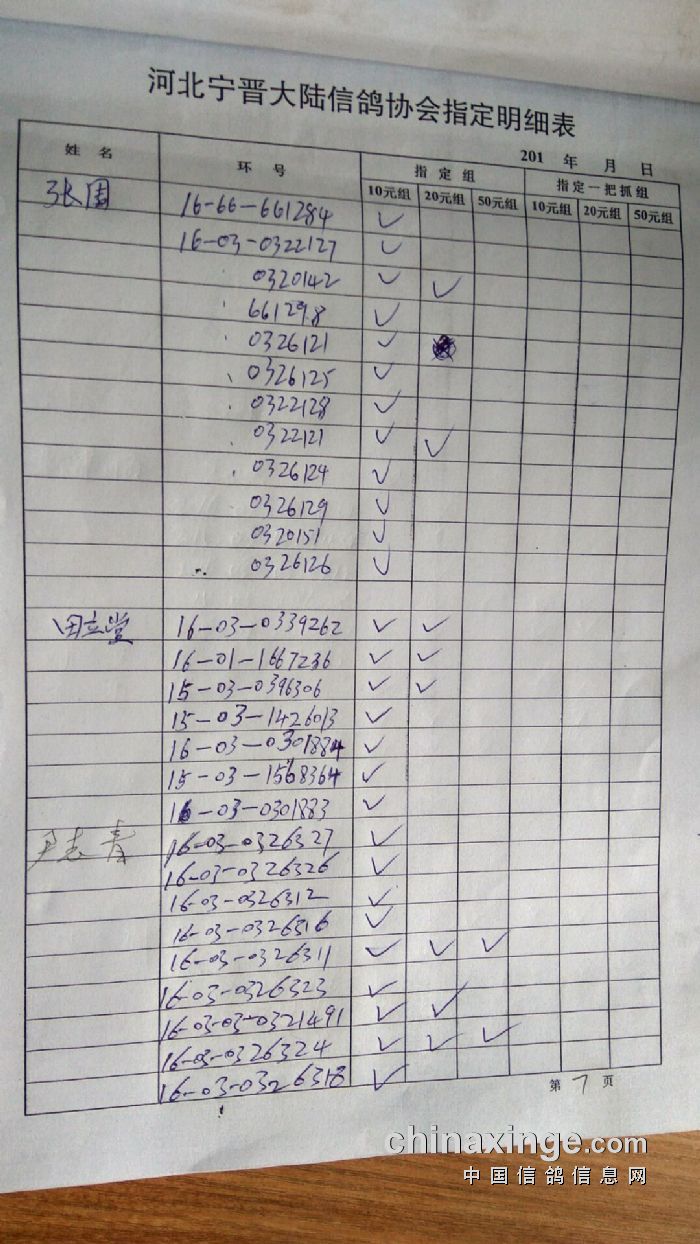 河北宁晋大陆信鸽协会指定明细表
201 年 月 日
姓 名 环 号 指 定 组 指定一把抓组
10元组 20元组 50元组 10元组 20元组 50元组
张周 16-66-661284 ✓
16-03-0322127 ✓
0320142 ✓ ✓
661298 ✓
0326121 ✓
0326125 ✓
0322128 ✓
0322121 ✓ ✓
0326124 ✓
0326129 ✓
0320151 ✓
0326126 ✓
田立堂 16-03-0339262 ✓ ✓
16-01-1667236 ✓ ✓
15-03-0396306 ✓ ✓
15-03-1426013 ✓
16-03-0301884 ✓
15-03-1568364 ✓
16-03-0301883 ✓
尹志青 16-03-0326327 ✓
16-03-0326326 ✓
16-03-0326312 ✓
16-03-0326316 ✓
16-03-0326311 ✓ ✓ ✓
16-03-0326323 ✓
16-03-03-0321491 ✓ ✓
16-03-0326324 ✓ ✓ ✓
16-03-0326318 ✓
第 7 页
chinaxinge.com
中国信鸽信息网